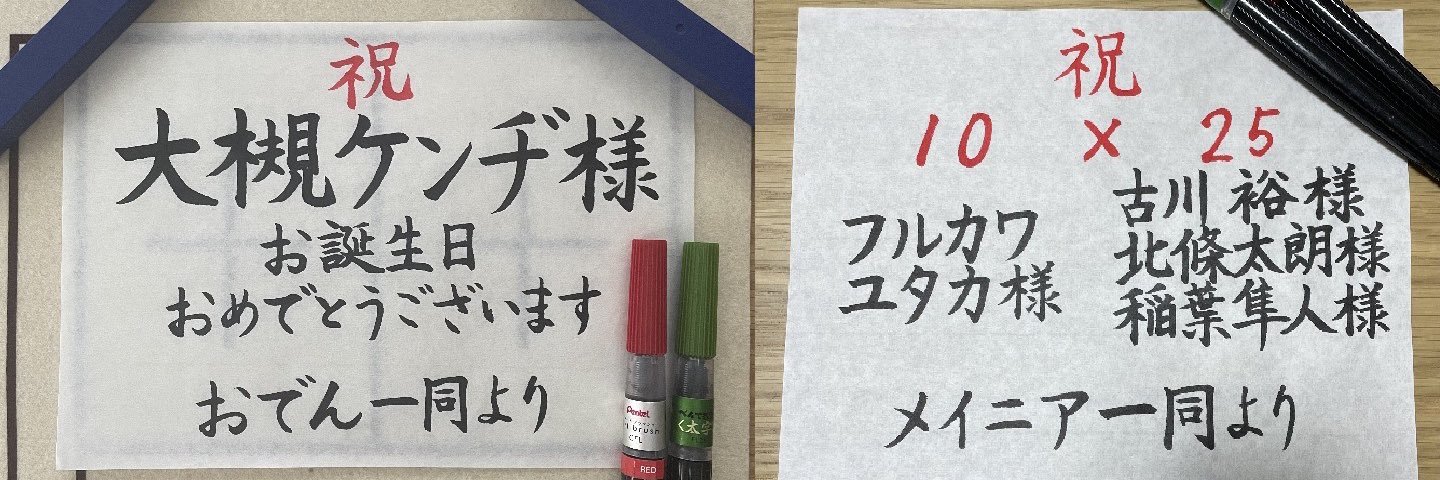 祝
大槻ケンヂ様
お誕生日
おめでとうございます
おでん一同より
Pentel
brush
RED
太字
祝
10 x 25
フルカワ
ユタカ様
古川 裕様
北條太朗様
稲葉隼人様
メイニアー同より